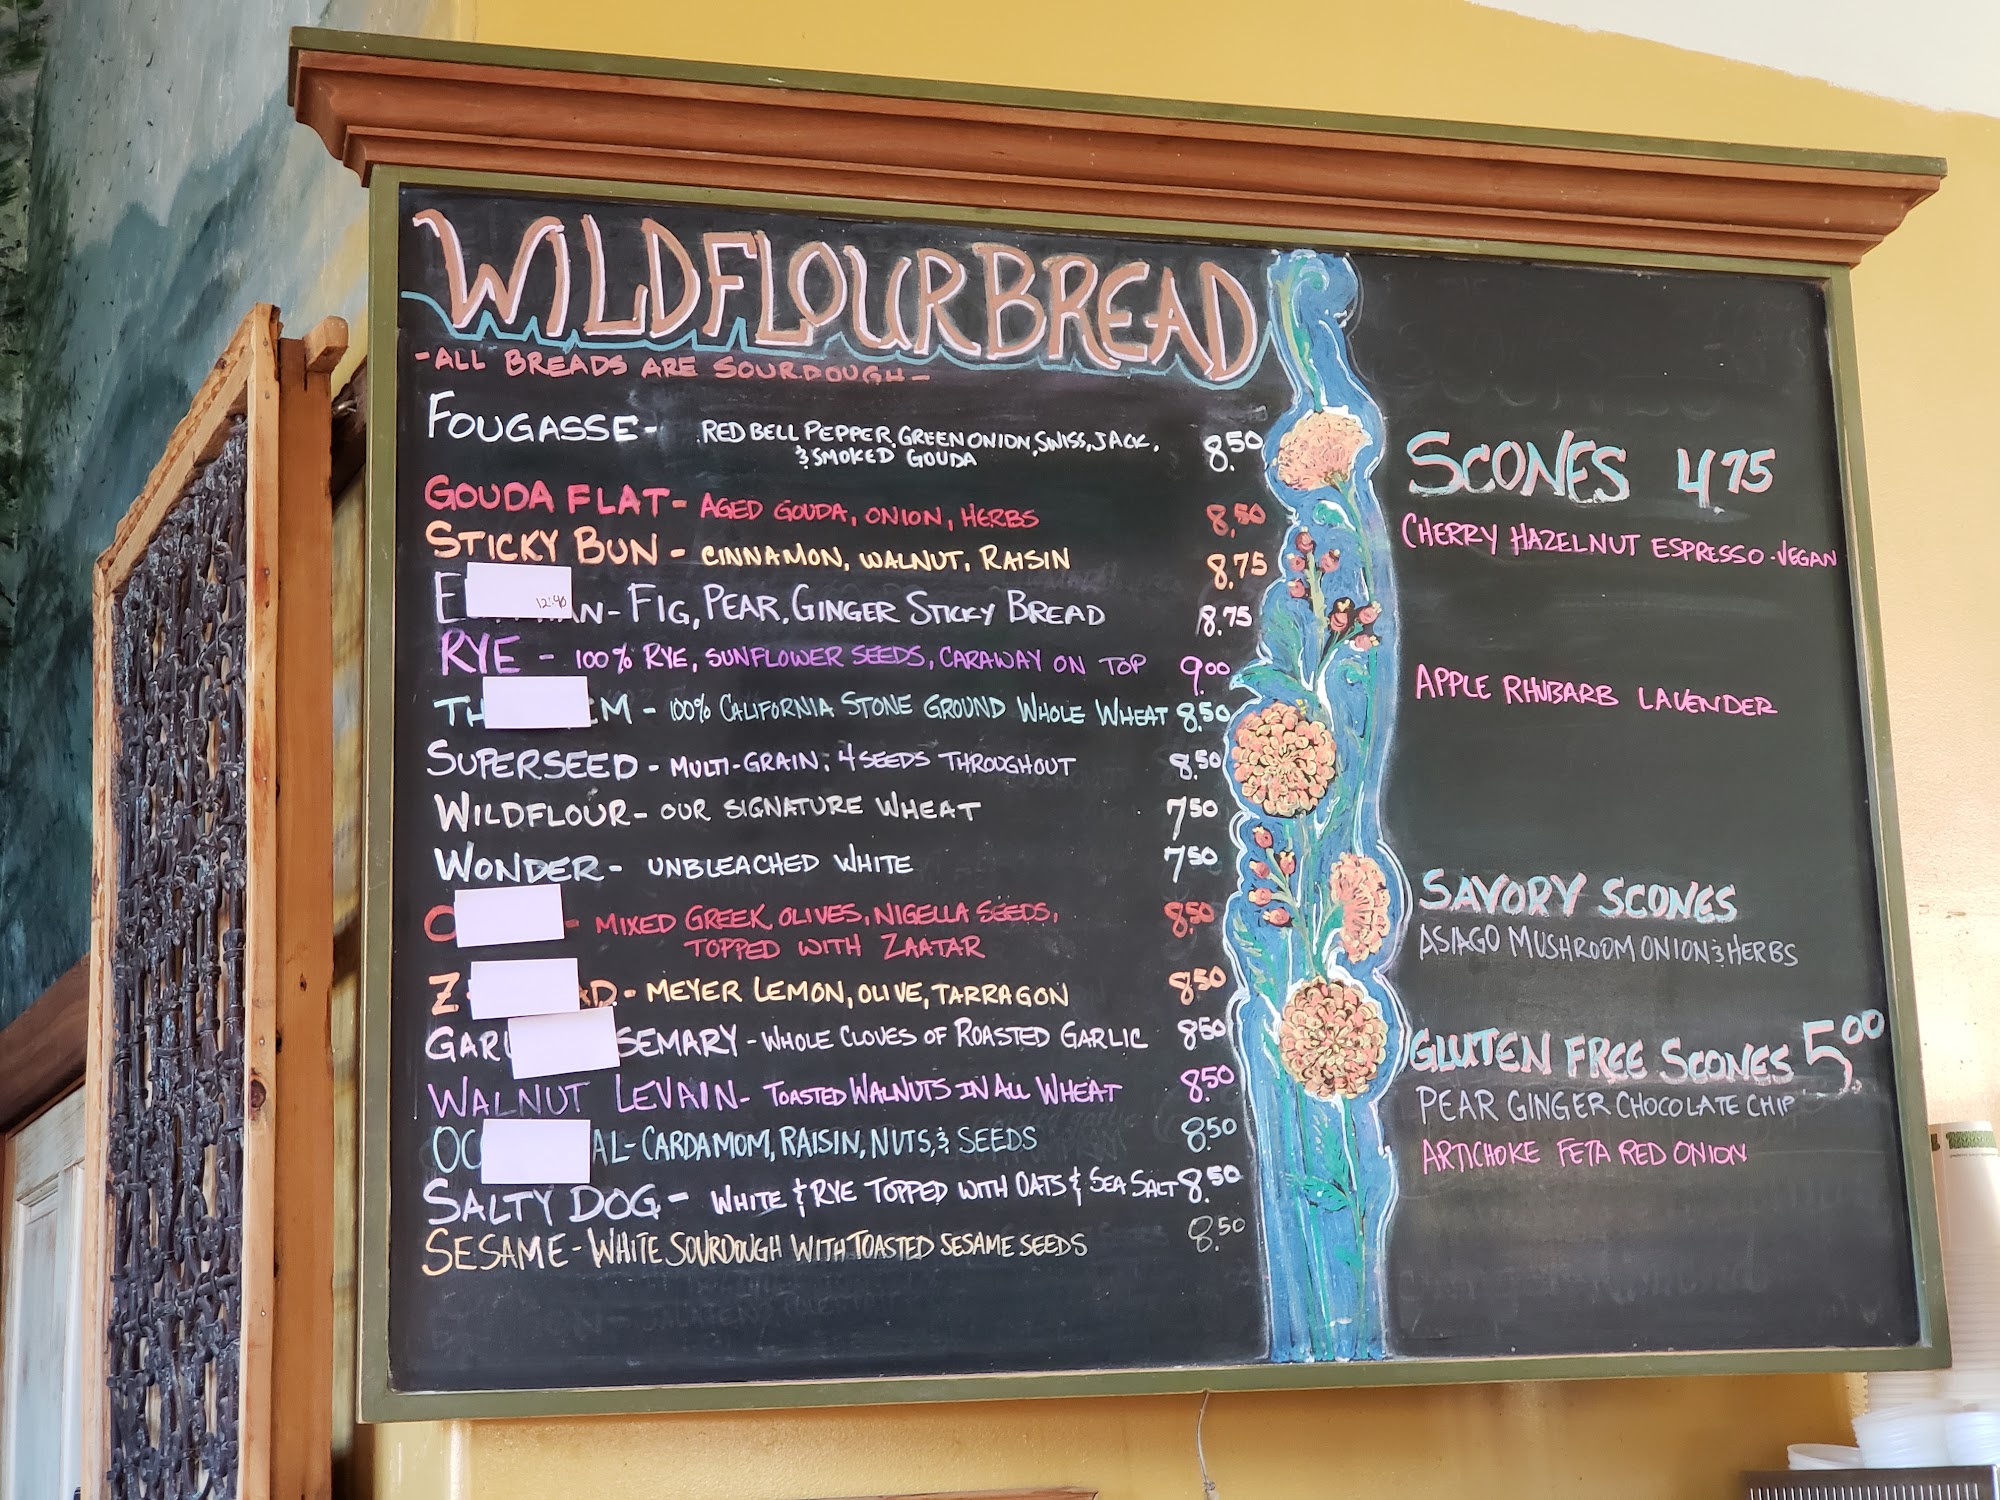 WILDFLOUR BREAD
-ALL BREADS ARE SOURDOUGH-
FOUGASSE- RED BELL PEPPER, GREEN ONION, SWISS, JACK, 8.50
& SMOKED GOUDA
GOUDA FLAT- AGED GOUDA, ONION, HERBS 8.50
STICKY BUN - CINNAMON, WALNUT, RAISIN 8.75
- FIG, PEAR, GINGER STICKY BREAD 8.75
12:40
RYE - 100% RYE, SUNFLOWER SEEDS, CARAWAY ON TOP 9.00
- 100% CALIFORNIA STONE GROUND WHOLE WHEAT 8.50
SUPERSEED - MULTI-GRAIN: 4 SEEDS THROUGHOUT 8.50
WILDFLOUR- OUR SIGNATURE WHEAT 7.50
WONDER- UNBLEACHED WHITE 7.50
- MIXED GREEK OLIVES, NIGELLA SEEDS, 8.50
TOPPED WITH ZAATAR
- MEYER LEMON, OLIVE, TARRAGON 8.50
- WHOLE CLOVES OF ROASTED GARLIC 8.50
WALNUT LEVAIN- TOASTED WALNUTS IN ALL WHEAT 8.50
- CARDAMOM, RAISIN, NUTS, & SEEDS 8.50
SALTY DOG - WHITE & RYE TOPPED WITH OATS & SEA SALT 8.50
SESAME- WHITE SOURDOUGH WITH TOASTED SESAME SEEDS 8.50
SCONES 4.75
CHERRY HAZELNUT ESPRESSO-VEGAN
APPLE RHUBARB LAVENDER
SAVORY SCONES
ASIAGO MUSHROOM ONION & HERBS
GLUTEN FREE SCONES 5.00
PEAR GINGER CHOCOLATE CHIP
ARTICHOKE FETA RED ONION